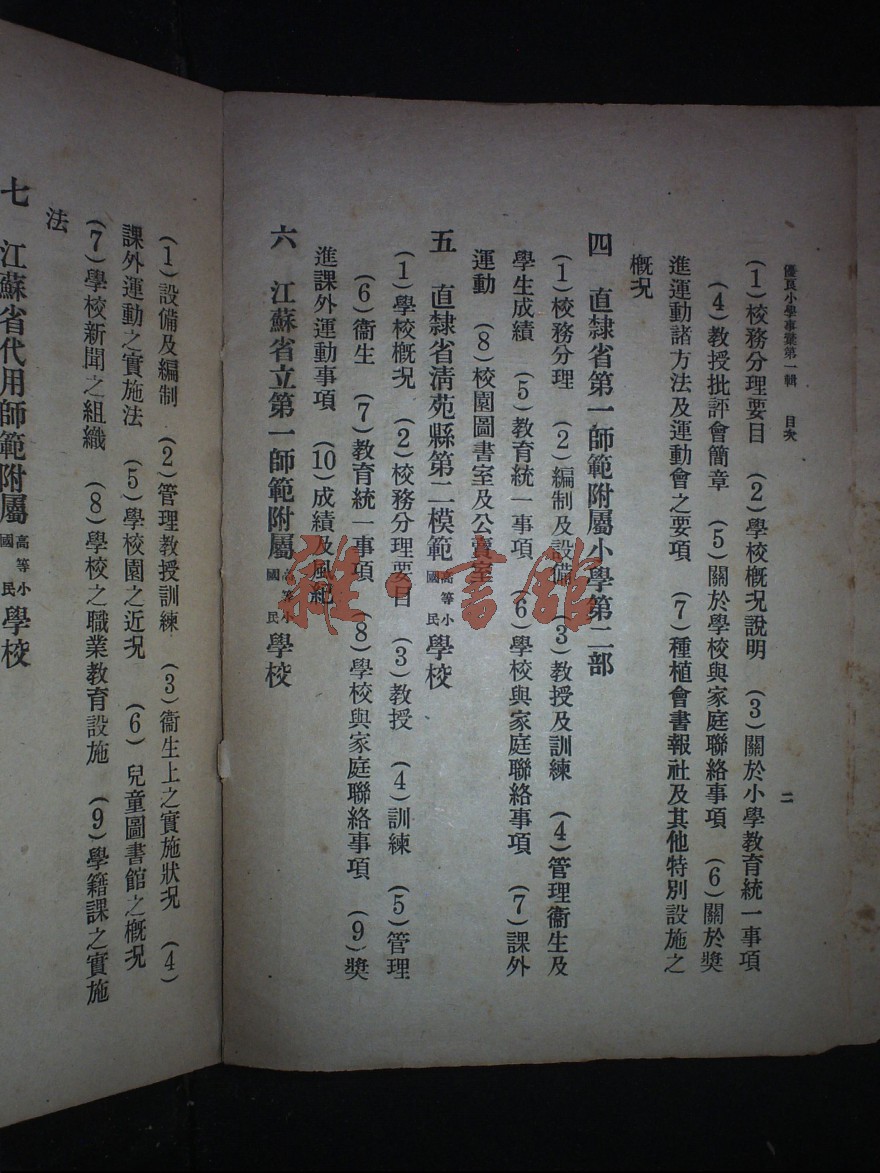 優良小學事彙第一輯 目次 二
(1)校務分理要目 (2)學校概況說明 (3)關於小學教育統一事項
(4)教授批評會簡章 (5)關於學校與家庭聯絡事項 (6)關於獎
進運動諸方法及運動會之要項 (7)種植會書報社及其他特別設施之
概況
四 直隸省第一師範附屬小學第二部
(1)校務分理 (2)編制及設備 (3)教授及訓練 (4)管理衞生及
學生成績 (5)教育統一事項 (6)學校與家庭聯絡事項 (7)課外
運動 (8)校園圖書室及公賣室
五 直隸省淸苑縣第二模範高等小國民學校
(1)學校概況 (2)校務分理要目 (3)教授 (4)訓練 (5)管理
(6)衞生 (7)教育統一事項 (8)學校與家庭聯絡事項 (9)獎
進課外運動事項 (10)成績及風紀
六 江蘇省立第一師範附屬高等小國民學校
(1)設備及編制 (2)管理教授訓練 (3)衞生上之實施狀況 (4)
課外運動之實施法 (5)學校園之近況 (6)兒童圖書館之概況
(7)學校新聞之組織 (8)學校之職業教育設施 (9)學籍課之實施
法
七 江蘇省代用師範附屬高等小國民學校
雜·書館